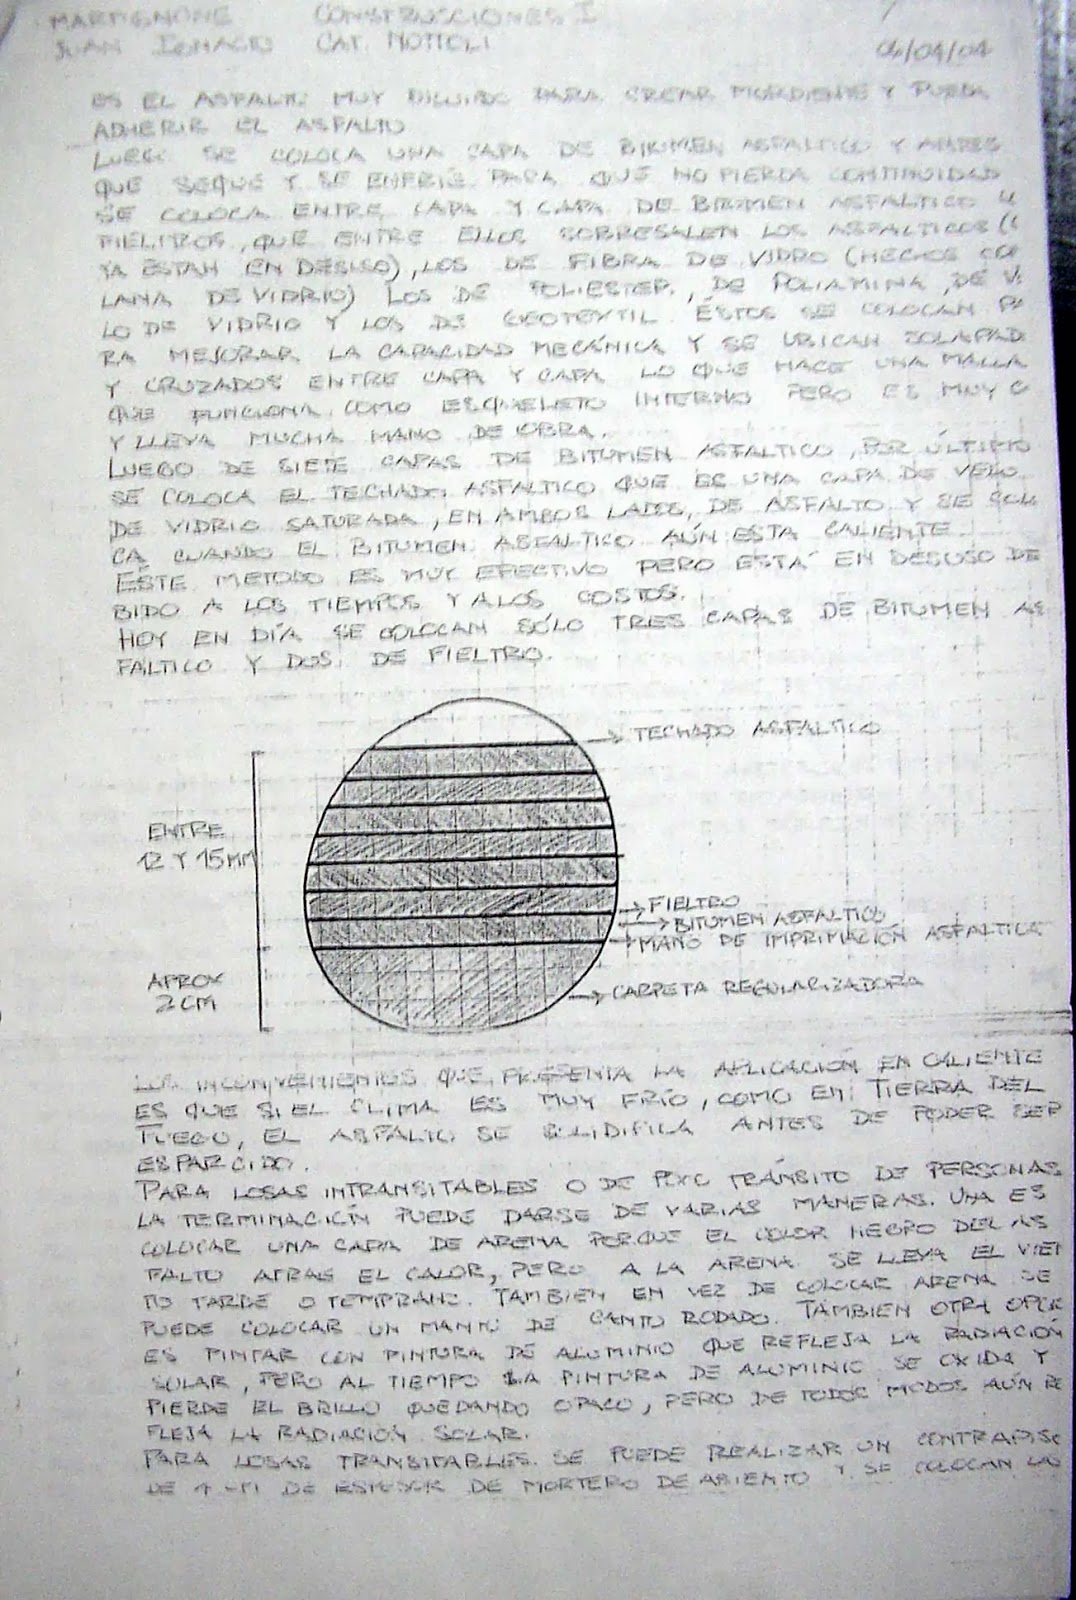 MARTIGNONE CONSTRUCCIONES I
JUAN IGNACIO CAT. NOTTOLI 04/04
ES EL ASFALTO MUY DILUIDO PARA CREAR MORDIENTE Y PUEDA
ADHERIR EL ASFALTO
LUEGO SE COLOCA UNA CAPA DE BITUMEN ASFALTICO Y ANTES
QUE SEQUE Y SE ENFRIE PARA QUE NO PIERDA CONTINUIDAD
SE COLOCA ENTRE CAPA Y CAPA DE BITUMEN ASFALTICO
FIELTROS, QUE ENTRE ELLOS SOBRESALEN LOS ASFALTICOS (
YA ESTAN EN DESUSO), LOS DE FIBRA DE VIDRO (HECHOS CO
LANA DE VIDRIO) LOS DE POLIESTER, DE POLIAMINA, DE V
LO DE VIDRIO Y LOS DE GEOTEXTIL. ÉSTOS SE COLOCAN PA
RA MEJORAR LA CAPACIDAD MECÁNICA Y SE UBICAN SOLAPAD
Y CRUZADOS ENTRE CAPA Y CAPA LO QUE HACE UNA MALLA
QUE FUNCIONA COMO ESQUELETO INTERNO PERO ES MUY C
Y LLEVA MUCHA MANO DE OBRA.
LUEGO DE SIETE CAPAS DE BITUMEN ASFALTICO, POR ÚLTIMO
SE COLOCA EL TECHADO ASFALTICO QUE ES UNA CAPA DE VELO
DE VIDRIO SATURADA, EN AMBOS LADOS, DE ASFALTO Y SE COLO
CA CUANDO EL BITUMEN ASFALTICO AÚN ESTA CALIENTE
ESTE METODO ES MUY EFECTIVO PERO ESTÁ EN DESUSO DE
BIDO A LOS TIEMPOS Y A LOS COSTOS.
HOY EN DÍA SE COLOCAN SÓLO TRES CAPAS DE BITUMEN AS
FALTICO Y DOS DE FIELTRO.
TECHADO ASFALTICO
ENTRE
12 Y 15MM
FIELTRO
BITUMEN ASFALTICO
MANO DE IMPRIMACIÓN ASFALTICA
APROX
2 CM
CARPETA REGULARIZADORA
LOS INCONVENIENTES QUE PRESENTA LA APLICACIÓN EN CALIENTE
ES QUE SI EL CLIMA ES MUY FRÍO, COMO EN TIERRA DEL
FUEGO, EL ASFALTO SE SOLIDIFICA ANTES DE PODER SER
ESPARCIDO.
PARA LOSAS INTRANSITABLES O DE POCO TRÁNSITO DE PERSONAS
LA TERMINACIÓN PUEDE DARSE DE VARIAS MANERAS. UNA ES
COLOCAR UNA CAPA DE ARENA PORQUE EL COLOR NEGRO DEL AS
FALTO ATRAE EL CALOR, PERO A LA ARENA SE LLEVA EL VIEN
TO TARDE O TEMPRANO. TAMBIEN EN VEZ DE COLOCAR ARENA SE
PUEDE COLOCAR UN MANTO DE CANTO RODADO. TAMBIEN OTRA OPCIO
ES PINTAR CON PINTURA DE ALUMINIO QUE REFLEJA LA RADIACIÓN
SOLAR, PERO AL TIEMPO LA PINTURA DE ALUMINIO SE OXIDA Y
PIERDE EL BRILLO QUEDANDO OPACO, PERO DE TODOS MODOS AÚN RE
FLEJA LA RADIACIÓN SOLAR.
PARA LOSAS TRANSITABLES SE PUEDE REALIZAR UN CONTRAPISO
DE ESPESOR DE MORTERO DE ASIENTO Y SE COLOCAN